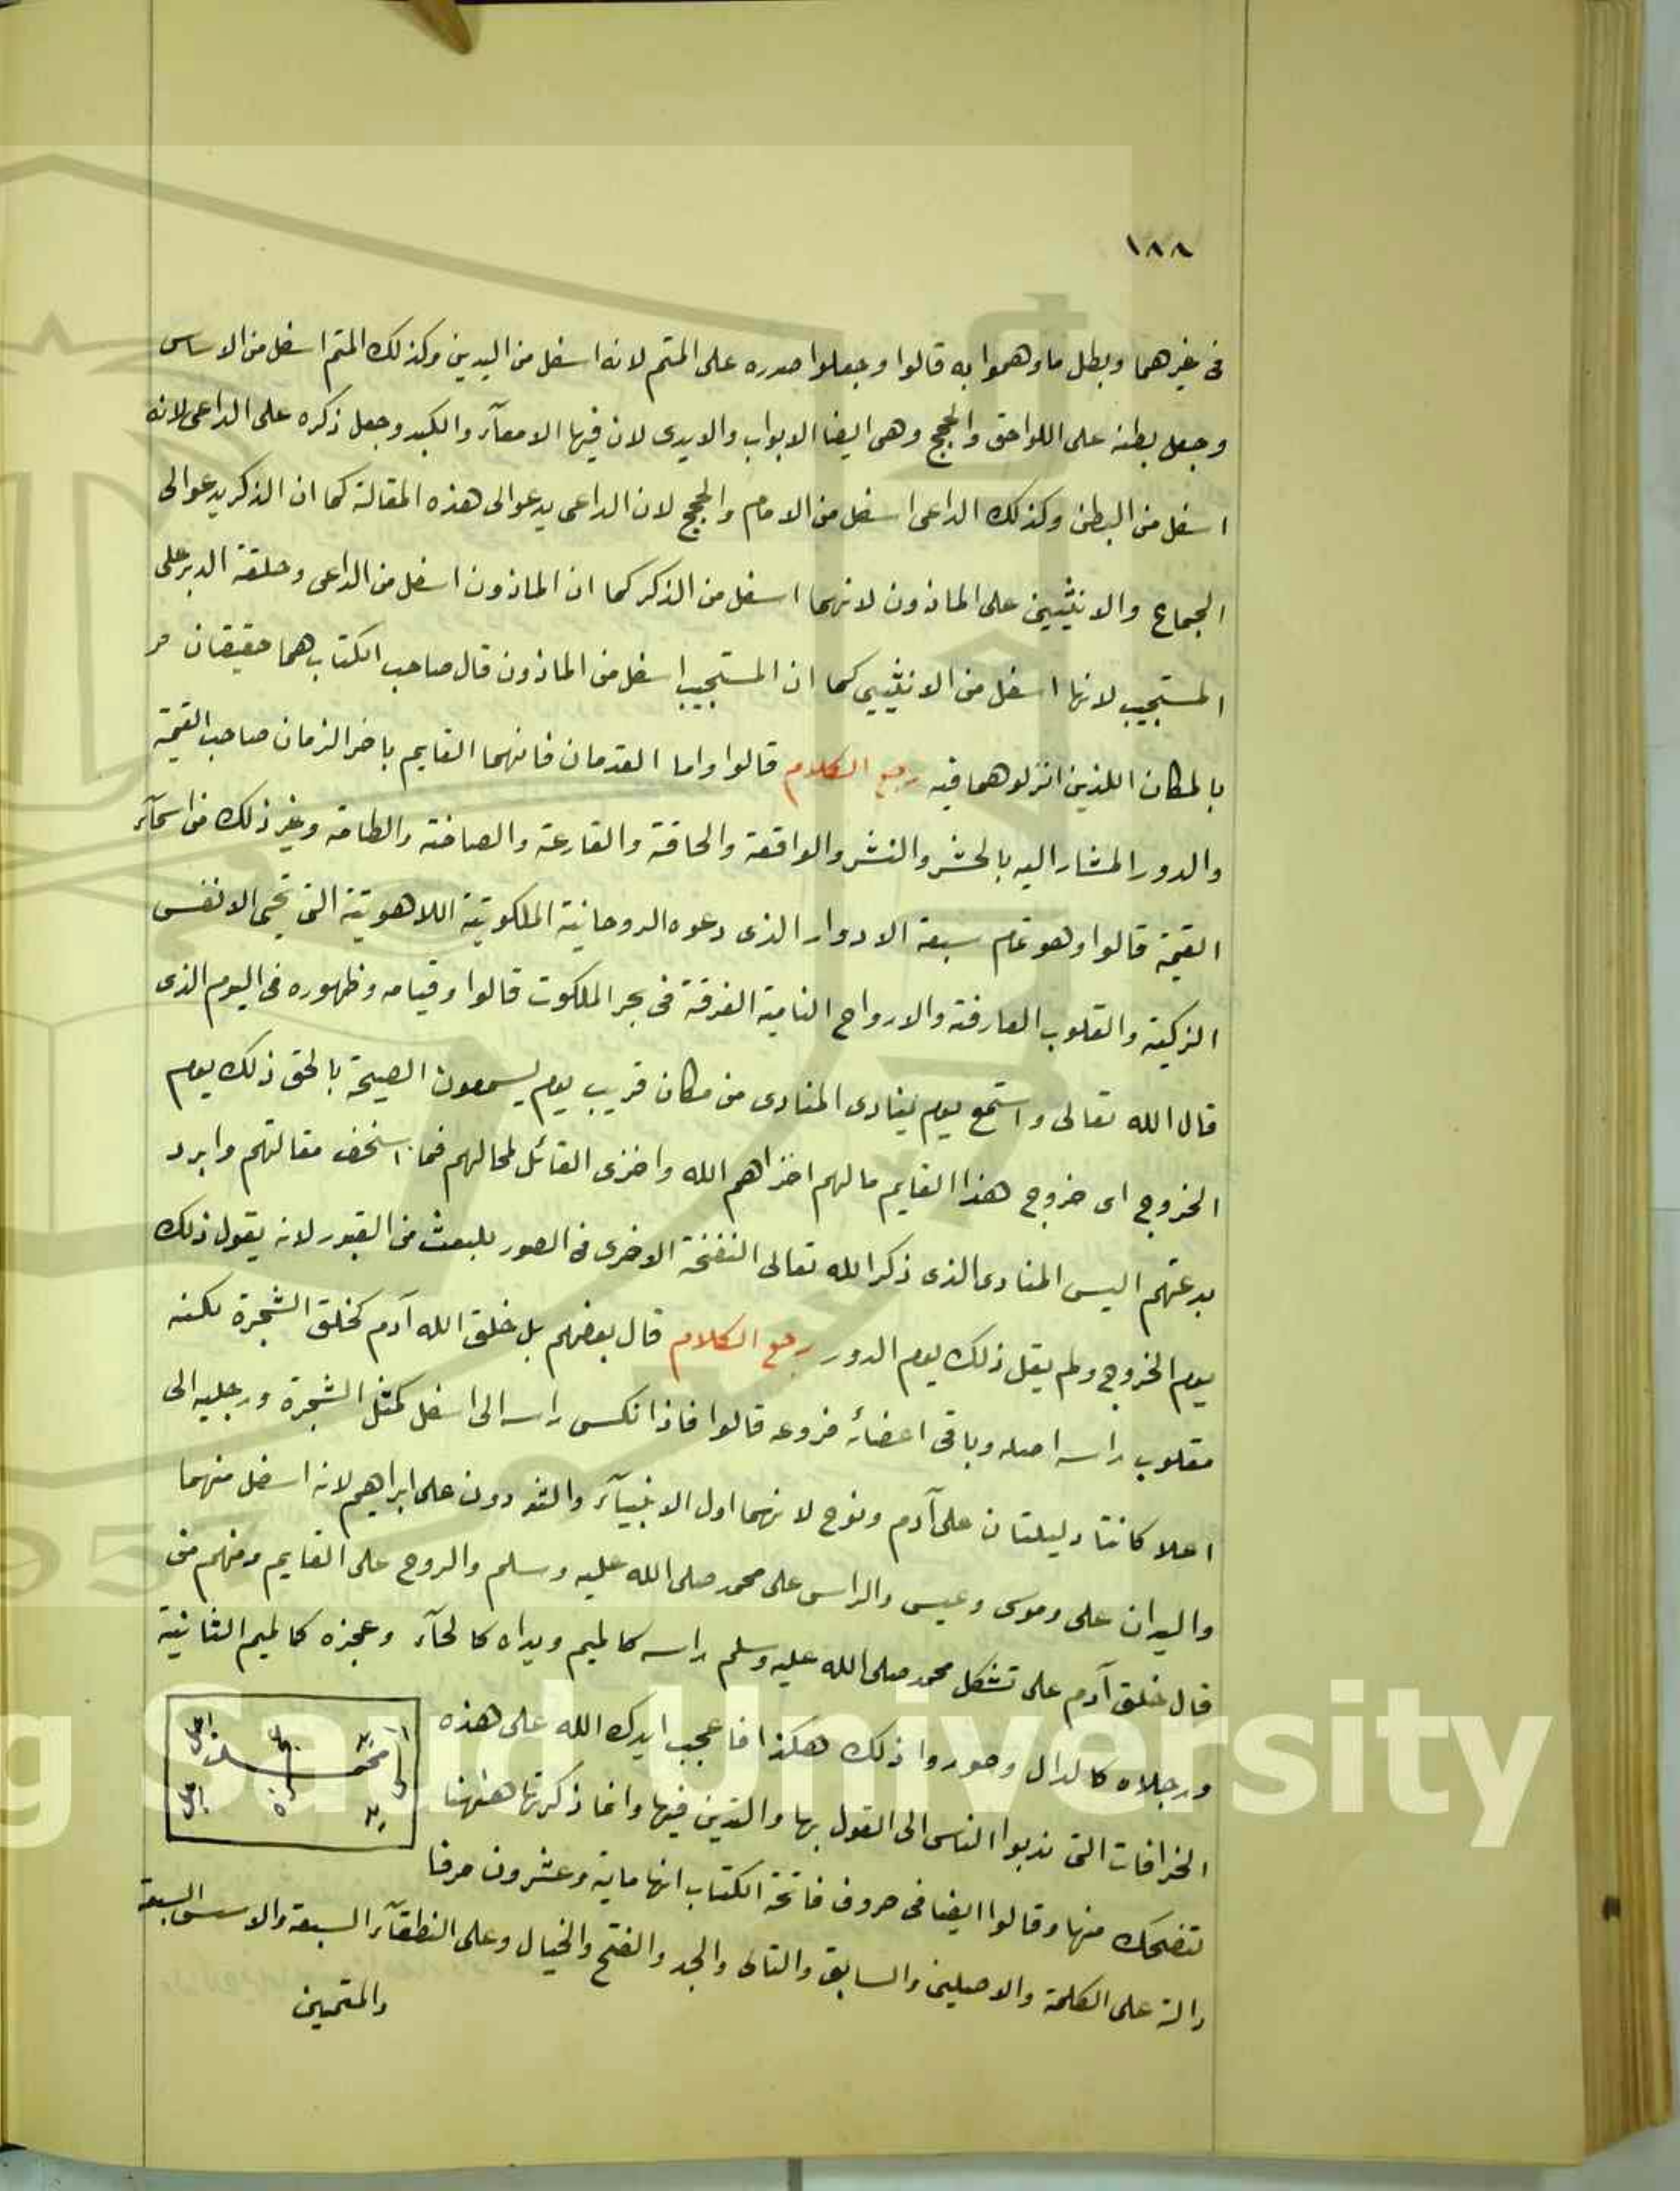 ١٨٨
فى غيرهما وبطل ما وهموا به قالوا وجعلوا صدره على المتم لانه اسفل من اليدين وكذلك المتم اسفل من الاساس
وجعل بطنه على اللواحق والحجج وهى ايضا الابواب والايدى لان فيها الامعآء والكبد وجعل ذكره على الداعى لانه
اسفل من البطن وكذلك الداعى اسفل من الامام والحجج لان الداعى يدعو الى هذه المقالة كما ان الذكر يدعو الى
الجماع والانثيين على الماذون لانهما اسفل من الذكر كما ان الماذون اسفل من الداعى وحلقة الدبر على
المستجيب لانها اسفل من الانثيين كما ان المستجيب اسفل من الماذون قال صاحب الكتاب هما حقيقان
بالمكان اللذين انزلوهما فيه رجع الكلام قالوا واما القدمان فانهما القايم باخر الزمان صاحب القيمة
والدور المشار اليه بالحشر والنشر والواقعة والحاقة والقارعة والصاخة والطامة وغير ذلك من اسمآء
القيمة قالوا وهو تمام سبعة الادوار الذى دعوه الروحانية الملكوتية اللاهوتية التى تحيى الانفس
الزكية والقلوب العارفة والارواح النامية الغرقة فى بحر الملكوت قالوا وقيامه وظهوره فى اليوم الذى
قال الله تعالى واستمع يوم ينادى المنادى من مكان قريب يوم يسمعون الصيحة بالحق ذلك يوم
الخروج اى خروج هذا القايم مالهم اخزاهم الله واخزى القائل لمحالهم فما اسخف مقالتهم وابرد
بدعتهم اليس المنادى الذى ذكر الله تعالى النفخة الاخرى فى الصور للبعث من القبور لانه يقول ذلك
يوم الخروج ولم يقل ذلك يوم الدور رجع الكلام قال بعضهم بل خلق الله آدم كخلق الشجرة لكنه
مقلوب راسه اصله وباقى اعضائه فروعه قالوا فاذا نكس راسه الى اسفل كمثل الشجرة ورجليه الى
اعلا كانتا دليلتان على آدم ونوح لانهما اول الانبيآء والثودون على ابراهيم لانه اسفل منهما
واليدان على وموسى وعيسى والراس على محمد صلى الله عليه وسلم والروح على القايم ومنهم من
قال خلق آدم على تشكل محمد صلى الله عليه وسلم راسه كالميم ويداه كالحآء وعجزه كالميم الثانية
ورجلاه كالدال وصوروا ذلك هكذا فاعجب ايدك الله على هذه
محمد
الخرافات التى ندبوا الناس الى القول بها والتدين فيها وانما ذكرتها ههنا
لتضحك منها وقالوا ايضا فى حروف فاتحة الكتاب انها ماية وعشرون حرفا
دالة على الكلمة والاصلين والسابق والتالى والجد والفتح والخيال وعلى النطقآء السبعة والاسس السبعة
والمتمين
King Saud University